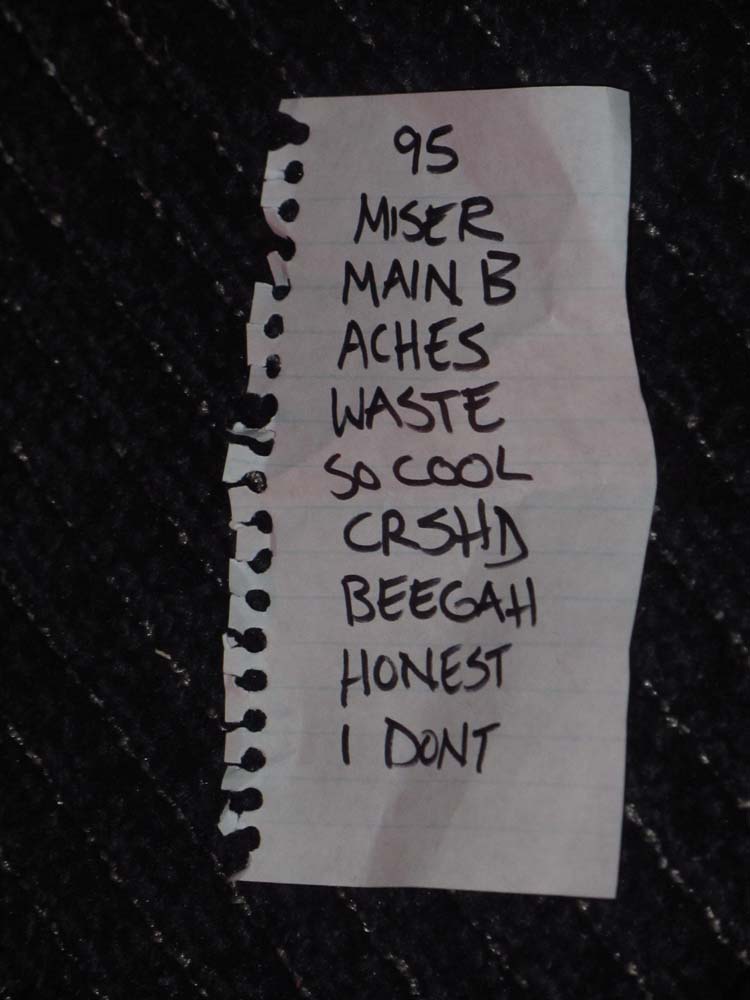 95
MISER
MAIN B
ACHES
WASTE
SO COOL
CRSHD
BEEGAH
HONEST
I DONT